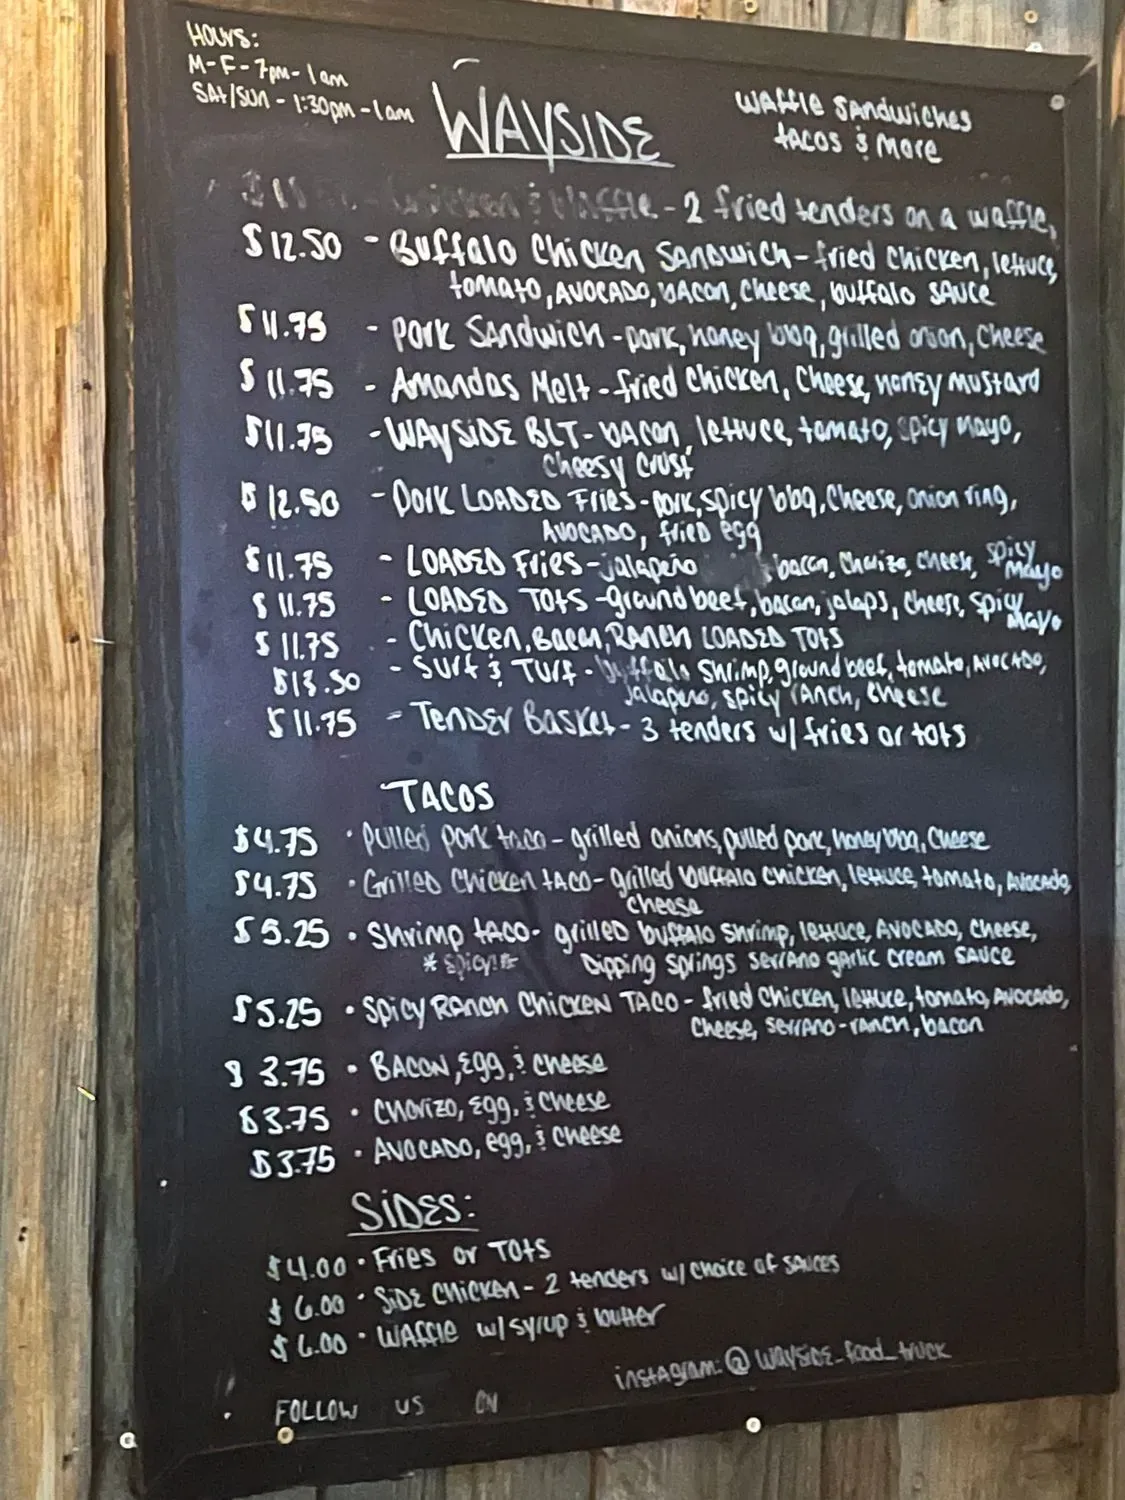 HOURS:
M-F-7pm-1am
SAt/SUn - 1:30pm-1am
WAYSIDE
WAffle SAndwiches
tACOS & MORE
Chicken & Waffle - 2 fried tenders on a waffle,
$12.50 - Buffalo Chicken SANDWich - fried chicken, lettuce,
tomato, AVOCADO, bacon, cheese, buffalo SAUCE
$11.75 - PORK SANdwich - pork, honey bbq, grilled onion, cheese
$11.75 - Amandas Melt - fried chicken, cheese, honey mustard
$11.75 - WAYSIDE BLT - bacon, lettuce, tomato, spicy mayo,
cheesy crust
$12.50 - PORK LOADED Fries - pork, spicy bbq, cheese, onion ring,
AVOCADO, fried egg
$11.75 - LOADED Fries - jalapeño bacon, chorizo, cheese, spicy
mayo
$11.75 - LOADED TOTS - ground beef, bacon, jalaps, cheese, spicy
mayo
$11.75 - Chicken, Bacon, RANCH LOADED TOTS
$13.50 - Surf & Turf - buffalo shrimp, ground beef, tomato, AVOCADO,
jalapeño, spicy ranch, cheese
$11.75 - TENDER BASKET - 3 tenders w/ fries or tots
TACOS
$4.75 • Pulled pork taco - grilled onions, pulled pork, honey bbq, cheese
$4.75 • Grilled Chicken tACO - grilled buffalo chicken, lettuce, tomato, AVOCADO,
cheese
$5.25 • Shrimp tACO - grilled buffalo shrimp, lettuce, AVOCADO, cheese,
*spicy!* Dipping Springs serrano garlic cream SAUCE
$5.25 • Spicy RANCH CHICKEN TACO - fried chicken, lettuce, tomato, AVOCADO,
cheese, serrano-ranch, bacon
$3.75 • BACON, Egg, & cheese
$3.75 • Chorizo, Egg, & cheese
$3.75 • AVOCADO, egg, & cheese
SIDES:
$4.00 • Fries or TOtS
$6.00 • SIDE CHICKEN - 2 tenders w/ choice of SAUCES
$6.00 • WAffle w/ syrup & butter
instagram: @ wayside_food_truck
FOLLOW US ON